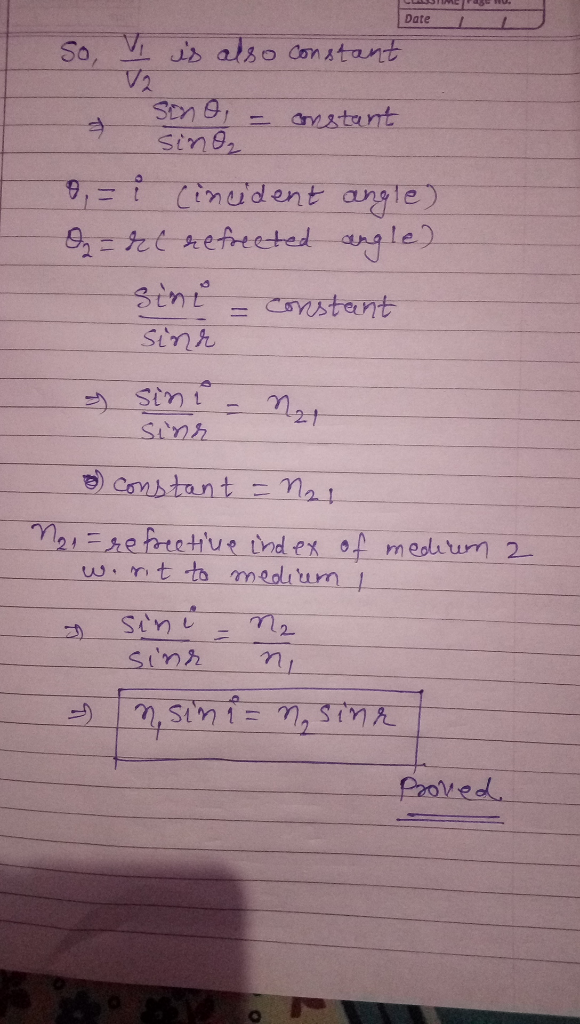 Date / /
So, V1/V2 is also constant
⇒ sin θ1/sin θ2 = constant
θ1 = i (incident angle)
θ2 = r (refreeted angle)
sin i/sin r = constant
⇒ sin i/sin r = n21
⇒ constant = n21
n21 = refreetive index of medium 2
w.r.t to medium 1
⇒ sin i/sin r = n2/n1
⇒ n1 sin i = n2 sin r
Proved